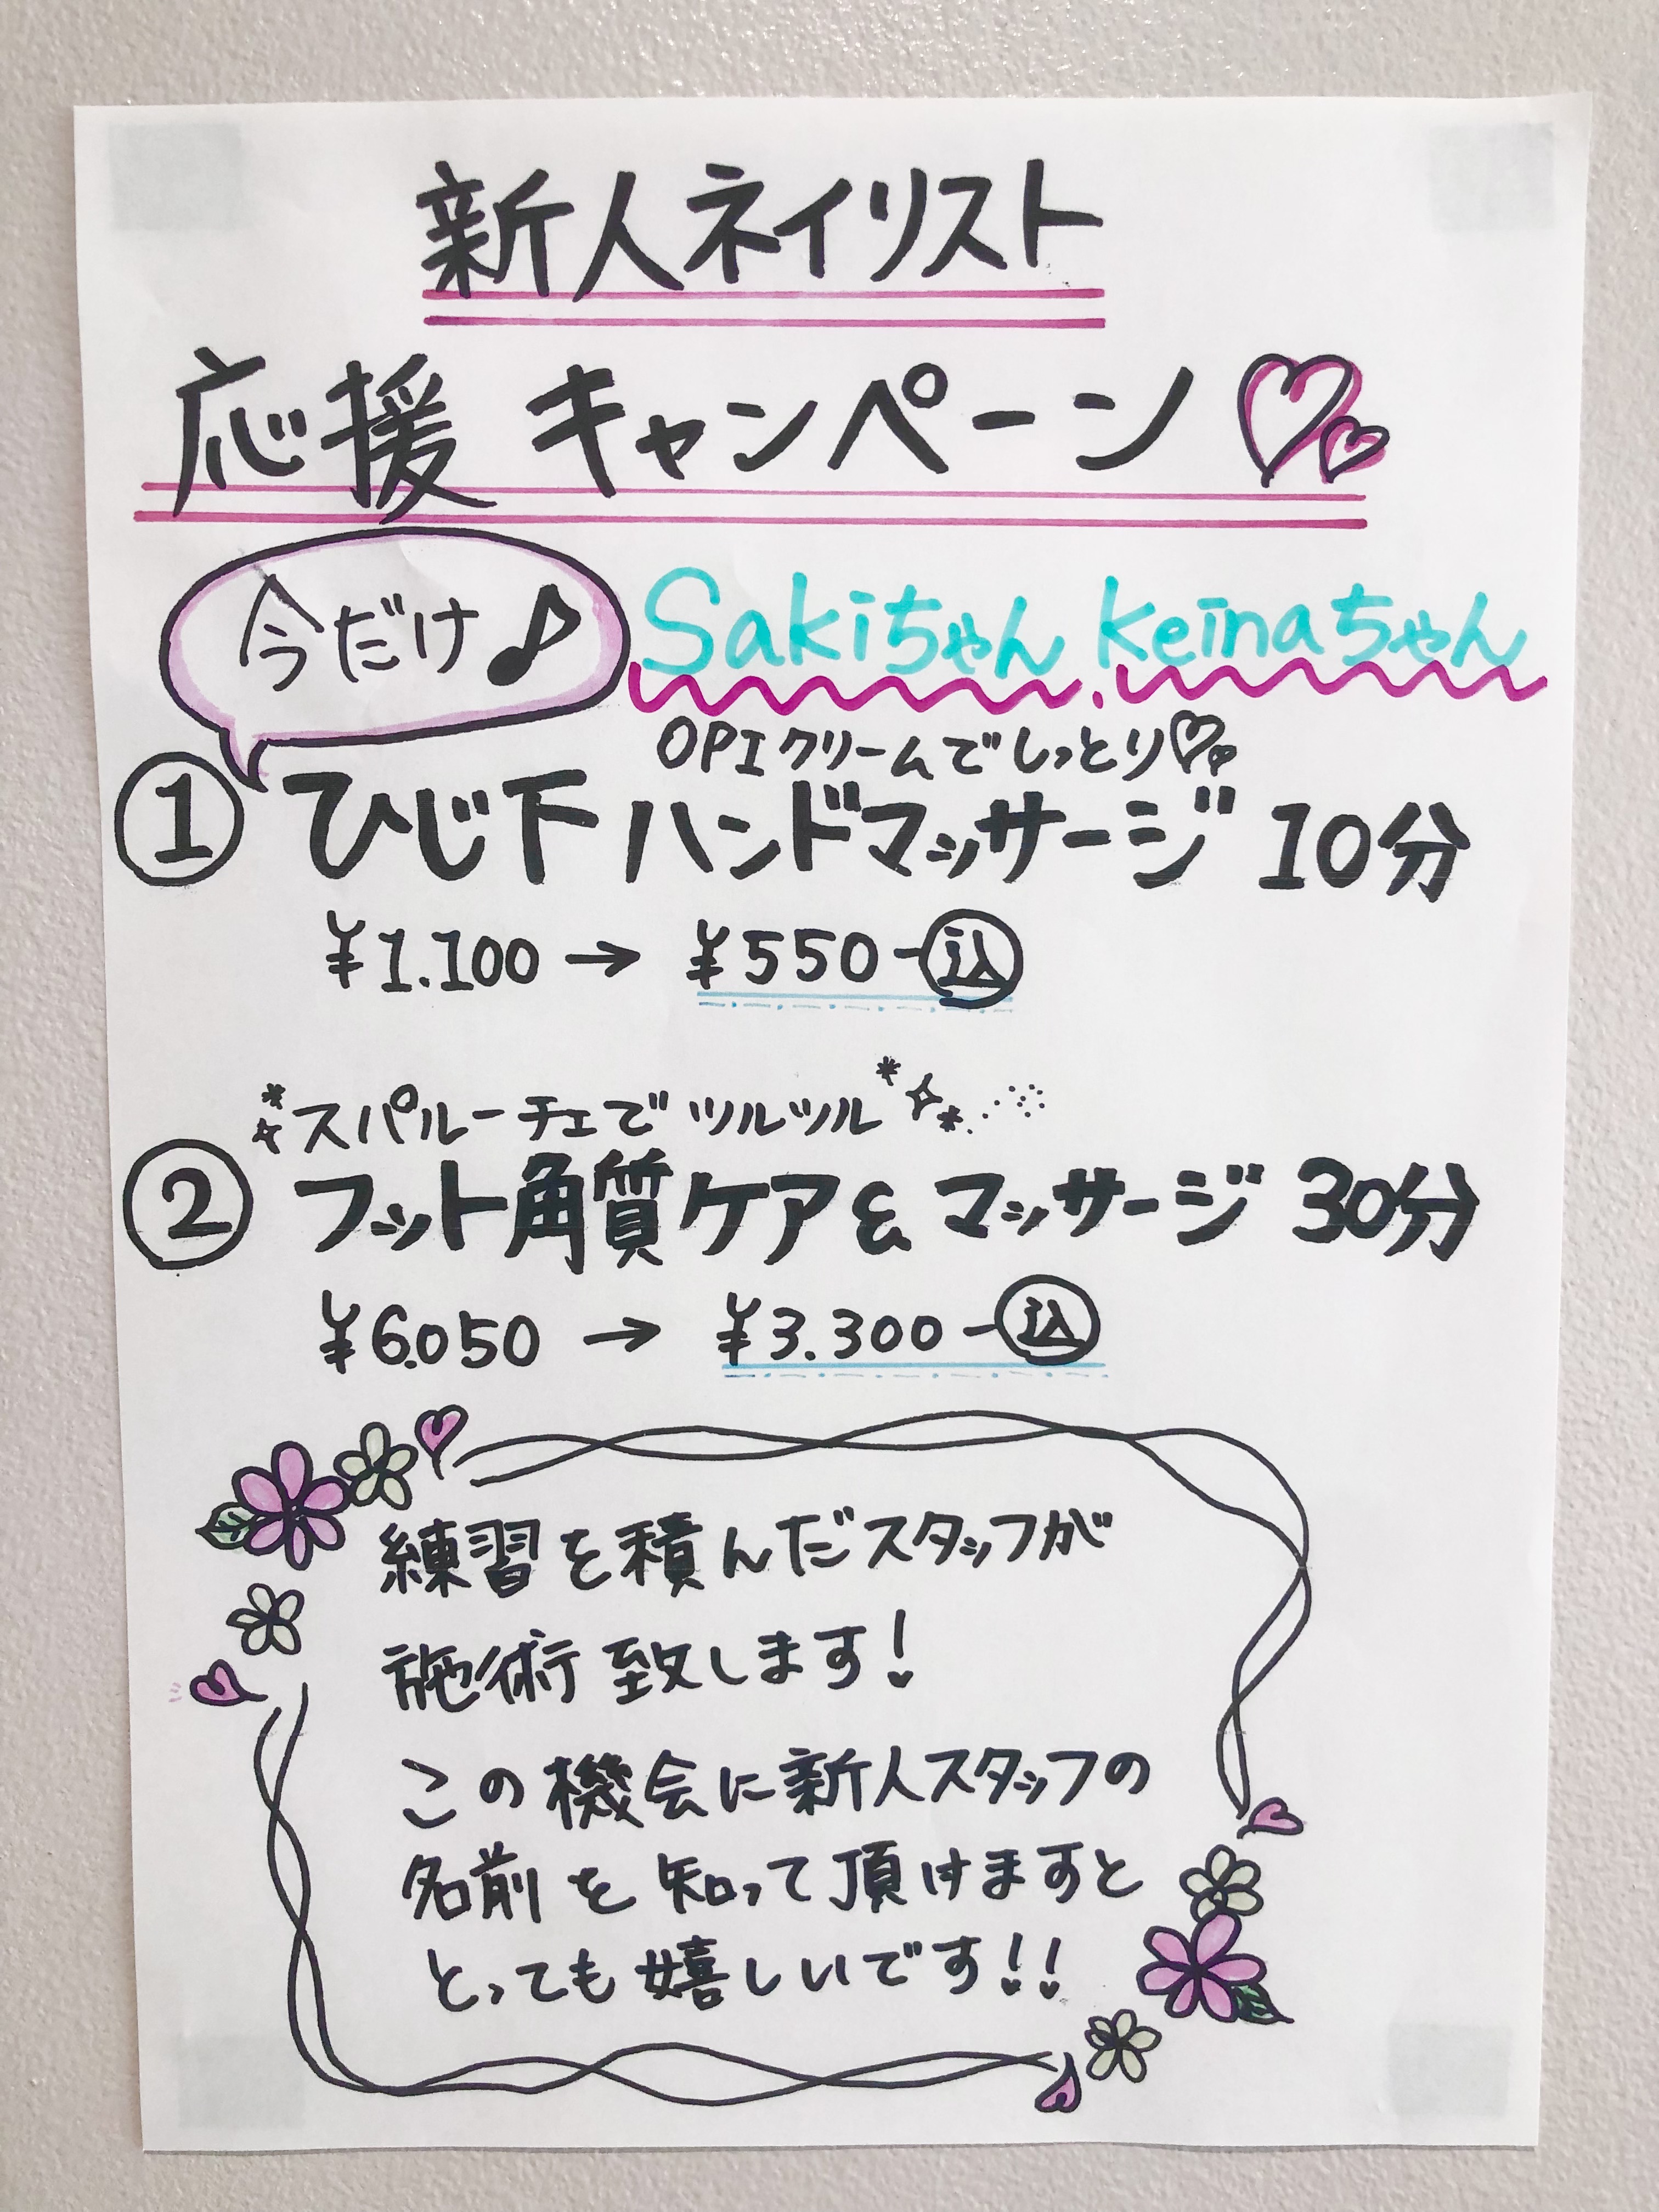 新人ネイリスト
応援キャンペーン♡♡
今だけ♪
Sakiちゃん.keinaちゃん
OPIクリームでしっとり♡♡
① ひじ下ハンドマッサージ 10分
¥1.100 → ¥550-込
スパルーチェでツルツル
② フット角質ケア&マッサージ 30分
¥6.050 → ¥3.300-込
練習を積んだスタッフが
施術致します!
この機会に新人スタッフの
名前を知って頂けますと
とっても嬉しいです!!